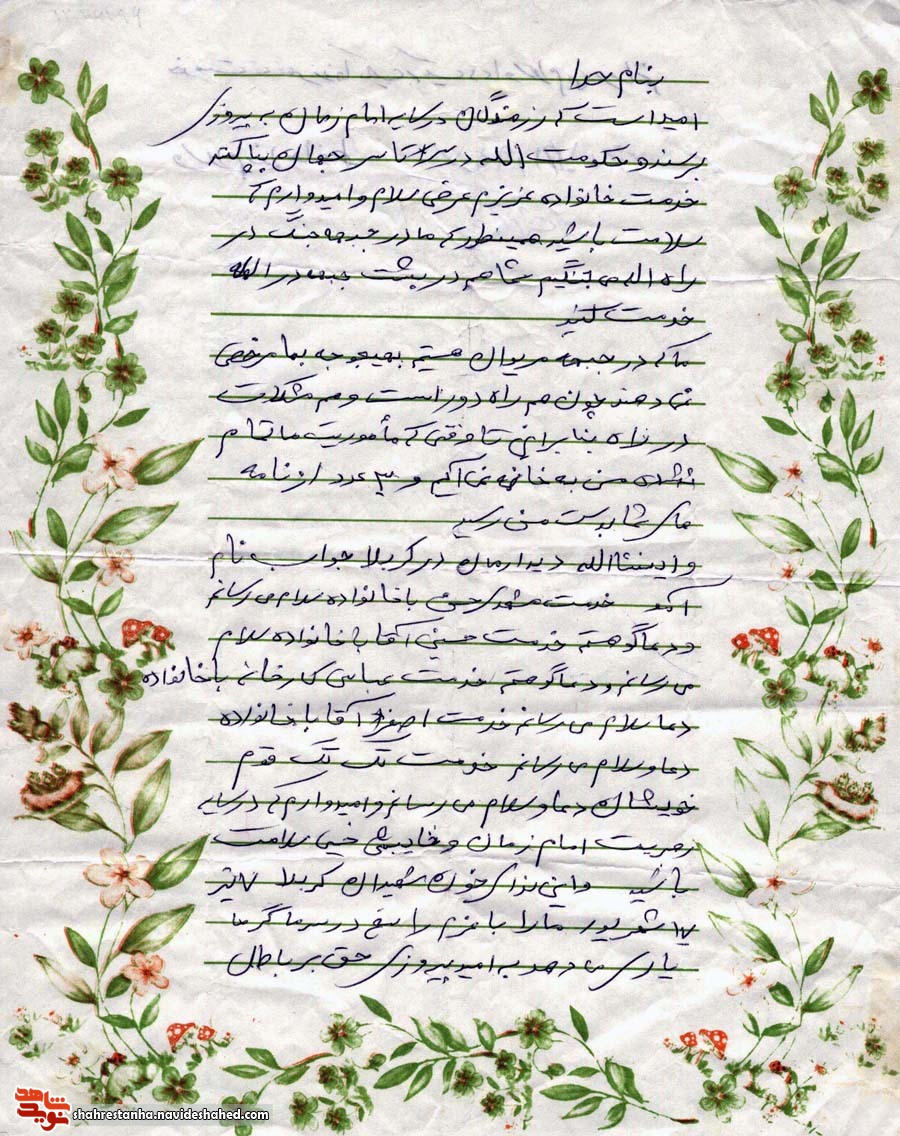 بنام خدا
امید است که رزمندگان در سایه امام زمان به پیروزی
برسند و حکومت الله در سرتاسر جهان بپا کنند
خدمت خانواده عزیزم عرض سلام و امیدوارم که
سلامت باشید همینطور که ما در جبهه جنگ در
راه الله می جنگیم شما هم در پشت جبهه در الله
خدمت کنید
ما که در جبهه مریوان هستیم بهیچوجه بما مرخصی
نمی دهند چون هم راه دور است و هم مشکلات
در راه بنابراین تا وقتی که مأموریت ما تمام
نشده من به خانه نمی آیم و ۳ عدد از نامه
های شما بدست من رسید
و اینشاالله دیدارمان در کربلا جواب نام
خدمت مشهدی با خانواده سلام می رسانم
و دعاگو هستم خدمت حسین آقا با خانواده سلام
می رسانم و دعاگو هستم خدمت عباس کارخانه با خانواده
دعا سلام می رسانم خدمت اصغر آقا با خانواده
دعا و سلام می رسانم خدمت تک تک قوم
خویشان دعا و سلام می رسانم و امیدوارم که در سایه
رهبریت امام زمان و نایب خمینی سلامت
باشید و این ندای خون شهیدان کربلا
۱۷ شهریور ما را با عزم راسخ در سرما گرما
یاری ما دهد به امید پیروزی حق بر باطل
شاهد
نوید
shahrestanha.navideshahed.com